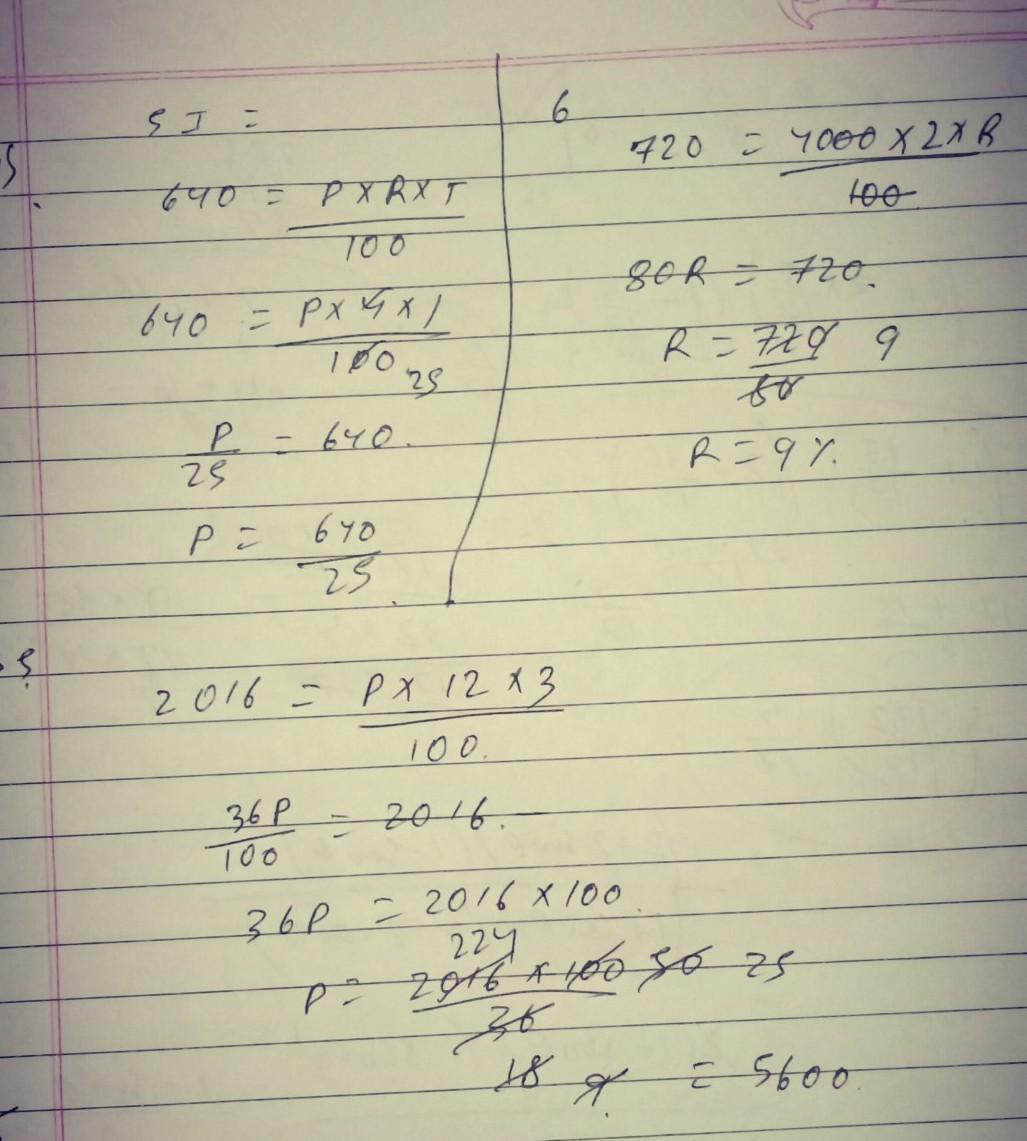 SI =
640 = P×R×T
100
640 = P×4×1
100 25
P = 640.
25
P = 640
25.
6
720 = 4000×2×R
100
80R = 720.
R = 720 9
80
R = 9%.
5
2016 = P× 12 ×3
100.
36P = 2016.
100
36P = 2016 ×100.
224
P = 2016 × 100 50 25
36
18 9. = 5600.